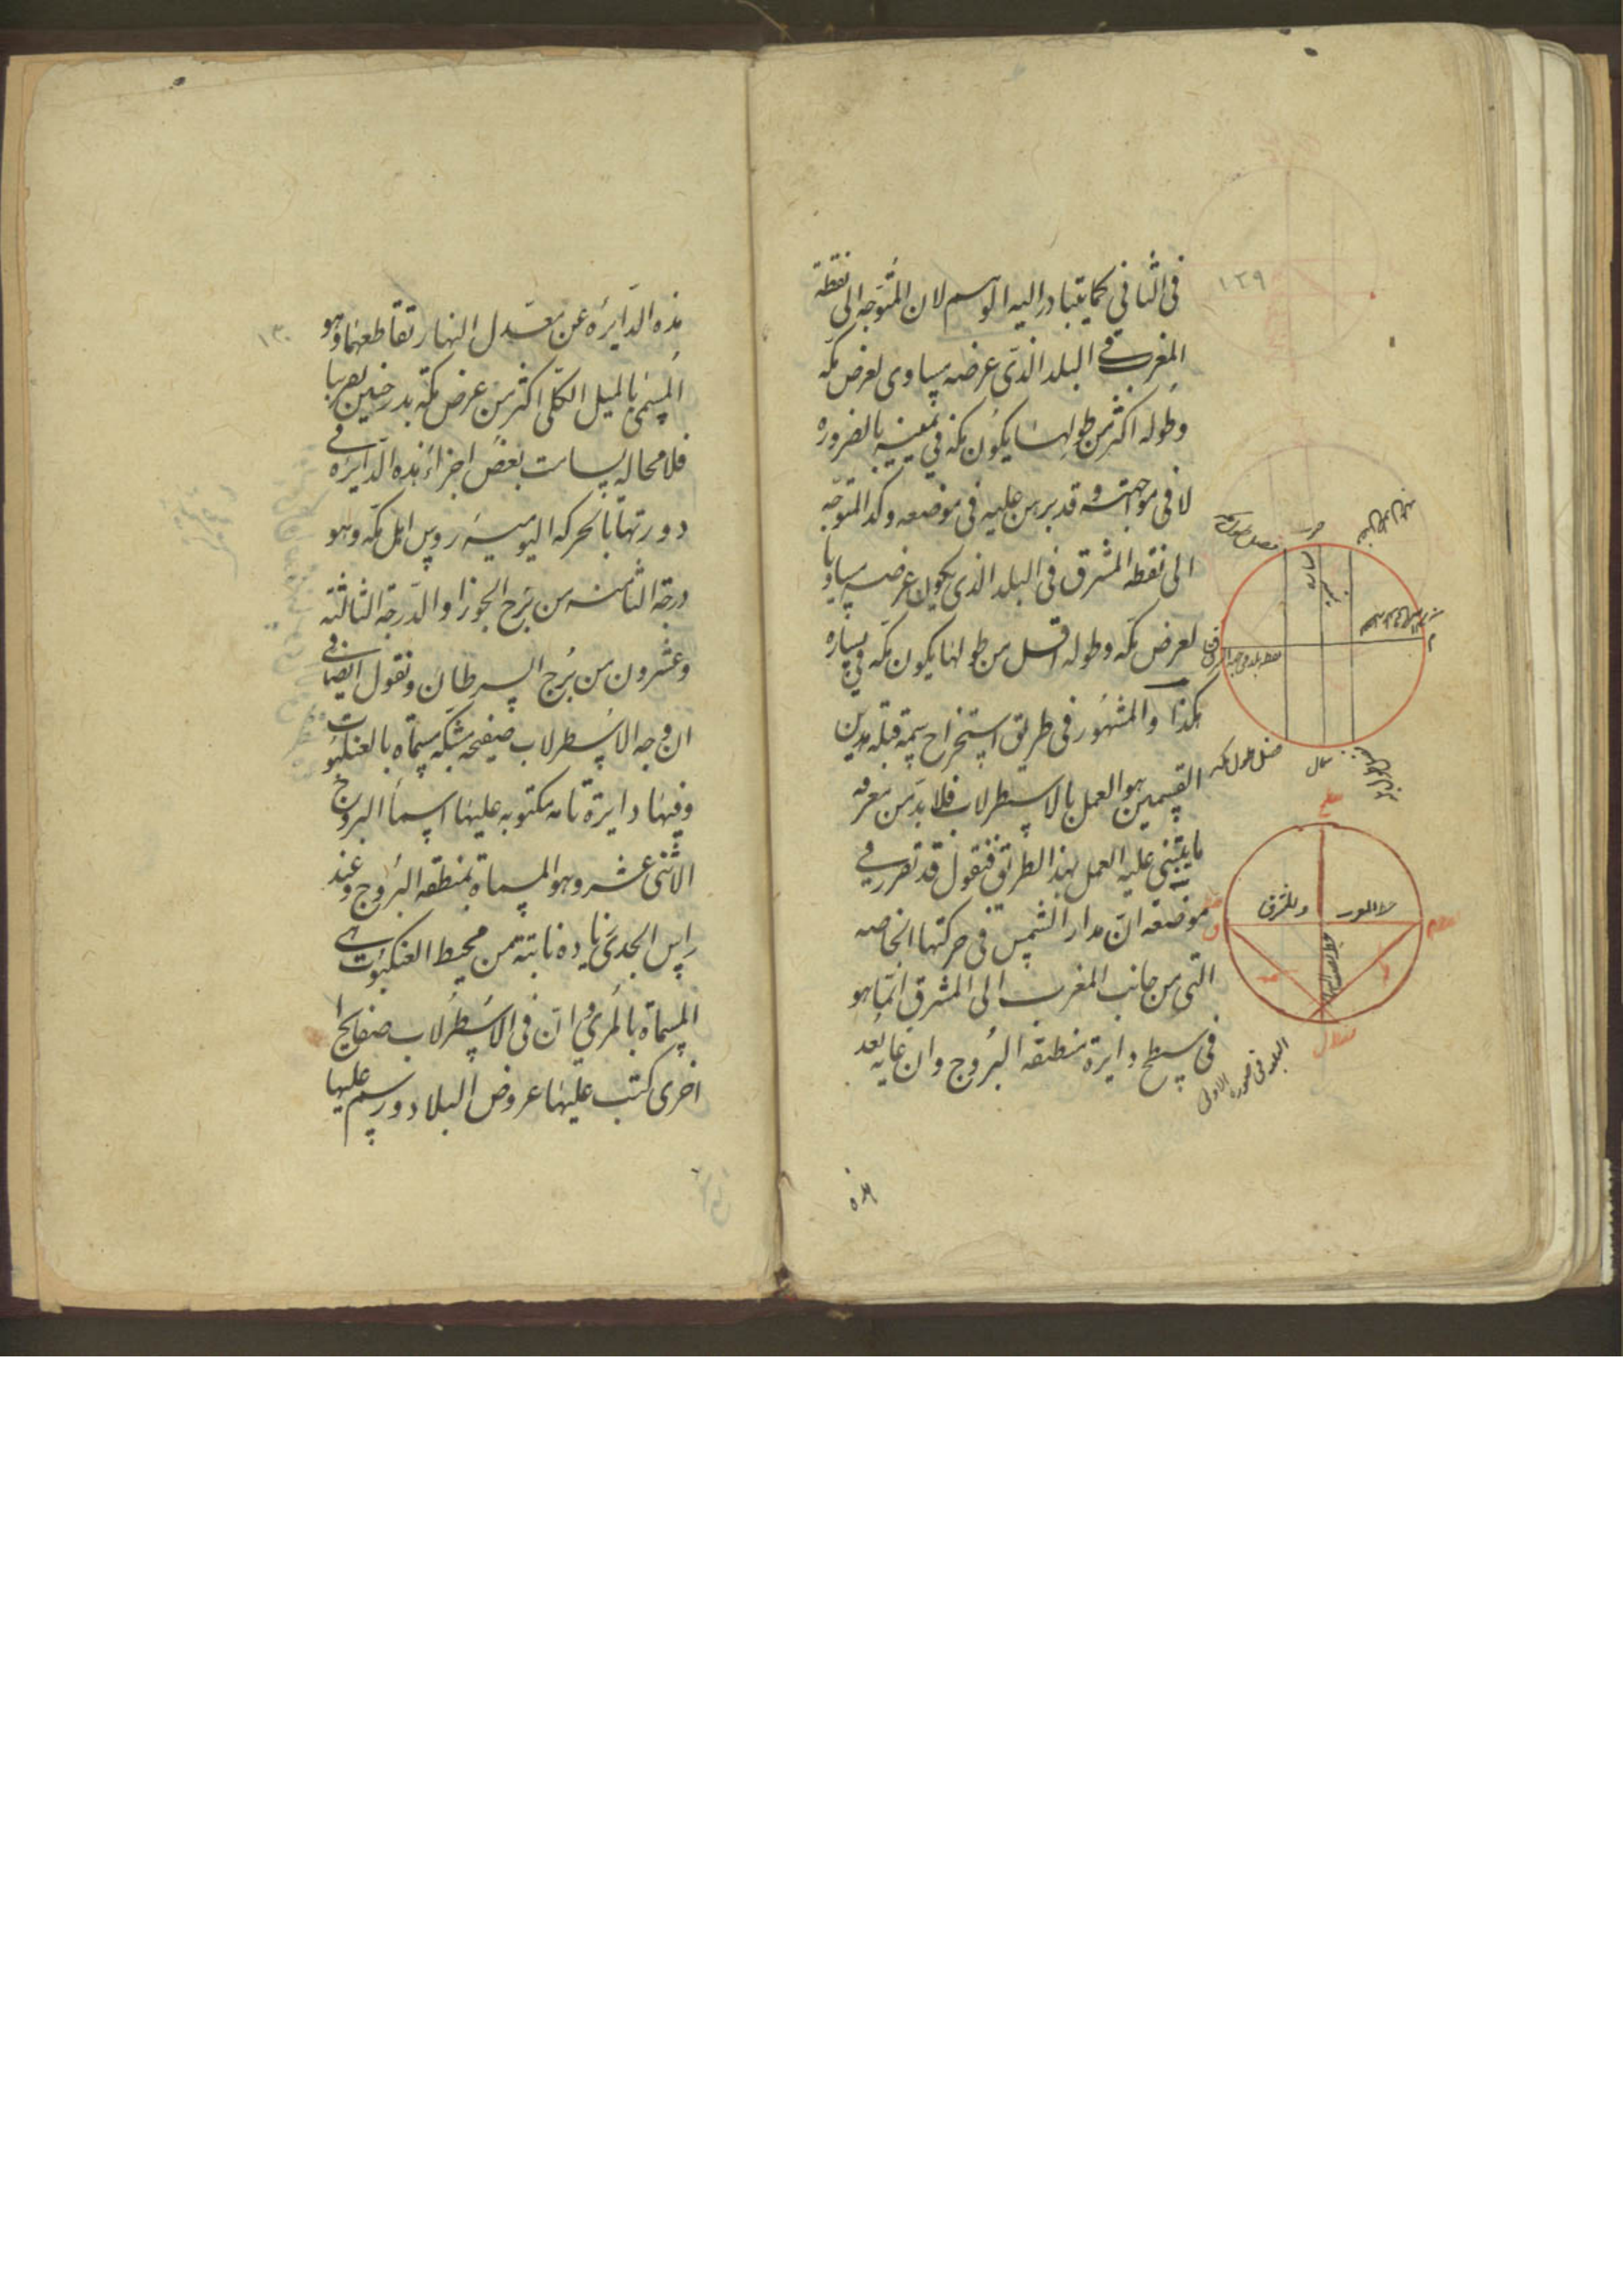 ١٢٩
فى الثانى كما يتبادر اليه الوهم لان المتوجه الى نقطة
المغرب فى البلد الذى عرضه مساوى لعرض مكه
وطوله اكثر من طولها يكون مكه فى يمينه بالضروره
لا فى مواجهته وقد برهن عليه فى موضعه وكذا المتوجه
الى نقطه المشرق فى البلد الذى يكون عرضه مساويا
لعرض مكه وطوله اقل من طولها يكون مكه فى يساره
هكذا والمشهور فى طريق استخراج سمت قبله هذين
القسمين هو العمل بالاسطرلاب فلا بد من معرفه
ما يبتنى عليه العمل بهذا الطريق فنقول قد تقرر فى
موضعه ان مدار الشمس فى حركتها الخاصه
التى من جانب المغرب الى المشرق انما هو
فى سطح دايرة منطقه البروج وان غايه بعد
هذه
فضل طول مكه
شمال
البلد فى صوره الاولى
١٣٠
هذه الدايره عن معدل النهار تقاطعهما وهو
المسمى بالميل الكلى اكثر من عرض مكه بدرجتين تقريبا
فلا محاله يسامت بعض اجزاء هذه الدايره فى
دورتها بالحركه اليوميه رؤس اهل مكه وهو
درجة الثامنه من برج الجوزا والدرجة الثالثة
وعشرون من برج السرطان ونقول ايضا فى
ان وجه الاسطرلاب صفيحه مشبكه مسماه بالعنكبوت
وفيها دايرة تامه مكتوبه عليها اسماء البروج
الاثنى عشر وهو المسماة بمنطقه البروج وعند
راس الجدى زياده نابتة من محيط العنكبوت
المسماة بالمرى وان فى الاسطرلاب صفايح ا
اخرى كتب عليها عروض البلاد ورسم عليها